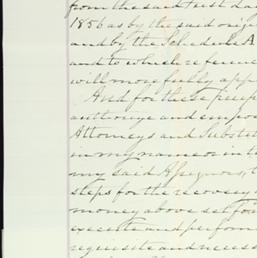 from the said first da
1856 as by the said orig
and by the Schedule A
and to which referen
will more fully app
And for these purp
authorize and empow
Attorneys and Substit
in my name or in t
my said Assignors, t
steps for the recovery
money above set for
execute and perform
requisite and necess